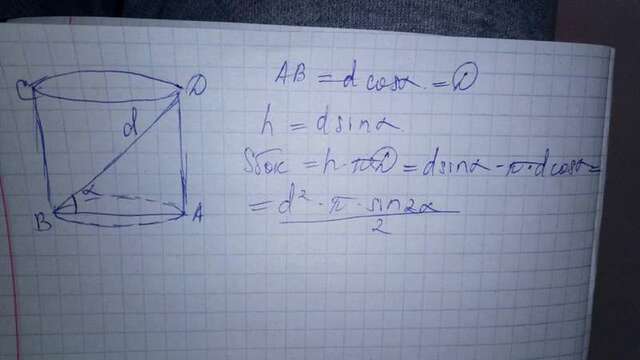 C
D
d
α
B
A
AB = d cosα = D
h = d sinα.
Sбок = h · πD = dsinα · π · d cosα =
= d² · π · sin2α
2